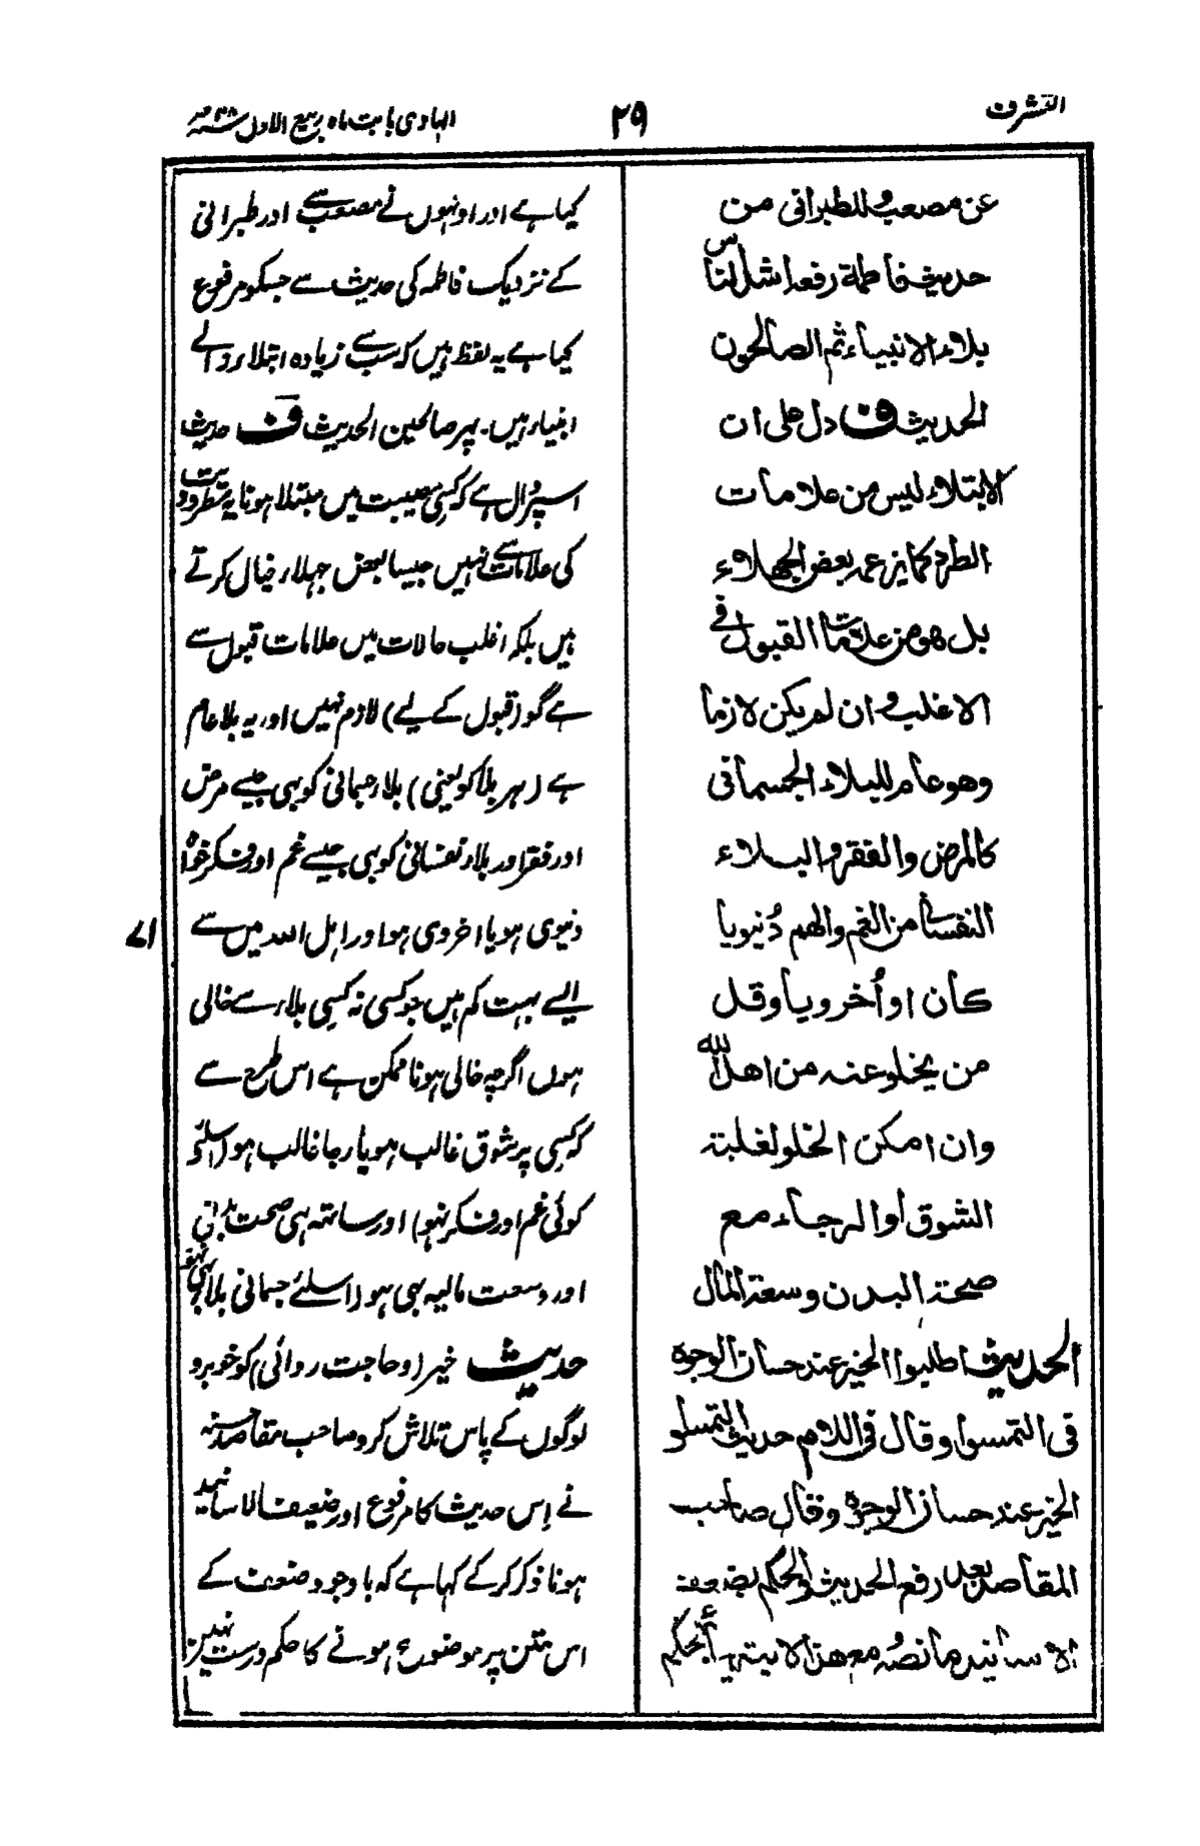 التشرف
۲۹
الہادی بابت ماہ ربیع الاول
عن مصعب وللطبرانی من
حدیث فاطمة رفعه اشد الناس
بلاء الانبیاء ثم الصالحون
الحدیث ف دل علی ان
الابتلاء لیس من علامات
الطرد کما یزعمه بعض الجهلاء
بل هو من علامات القبول فی
الاغلب وان لم یکن لازما
وهو عام للبلاء الجسمانی
کالمرض والفقر والبلاء
النفسانی من الغم والهم دُنیویا
کان او اُخرویا وقل
من یخلو عنه من اهل الله
وان امکن الخلو لغلبة
الشوق او الرجاء مع
صحة البدن وسعة المال
الحدیث اطلبوا الخیر عند حسان الوجوه
فی التمسوا وقال فی اللام حدیث التمسوا
الخیر عند حسان الوجوه وقال صاحب
المقاصد بعد رفع الحدیث والحکم بضعف
الاسانید مانصُه مع هذا لا یتهیأ الحکم
کیا ہے اور اونہوں نے مصعب سے اور طبرانی
کے نزدیک فاطمہ کی حدیث سے جسکو مرفوع
کیا ہے یہ لفظ ہیں کہ سب سے زیادہ ابتلاء والے
انبیاء ہیں۔ پہر صالحین الحدیث ف حدیث
اسپر دال ہے کہ کسی مصیبت میں مبتلا ہونا یہ مطرودیت
کی علامات سے نہیں جیسا بعض جہلاء خیال کرتے
ہیں بلکہ اغلب حالات میں علامات قبول سے
ہے گو (قبول کے لیے) لازم نہیں اور یہ بلا عام
ہے (ہر بلا کو یعنی) بلاء جسمانی کو بہی جیسے مرض
اور فقر اور بلاء نفسانی کو بہی جیسے غم اور فکر خواہ
دنیوی ہو یا اخروی ہو اور اہل اللہ میں سے
ایسے بہت کم ہیں جو کسی نہ کسی بلاء سے خالی
ہوں اگرچہ خالی ہونا ممکن ہے اس طرح سے
کہ کسی پر شوق غالب ہو یا رجا غالب ہو (اسلئے
کوئی غم اور فکر نہو) اور ساتہ ہی صحت بدنی
اور وسعت مالیہ بہی ہو (اسلئے جسمانی بلا بہی نہو
حدیث خیر (و حاجت روائی) کو خوبرو
لوگوں کے پاس تلاش کرو صاحب مقاصد حسنہ
نے اِس حدیث کا مرفوع اور ضعیف الاسانید
ہونا ذکر کر کے کہا ہے کہ باوجود ضعف کے
اس متن پر موضوع ہونے کا حکم درست نہیں